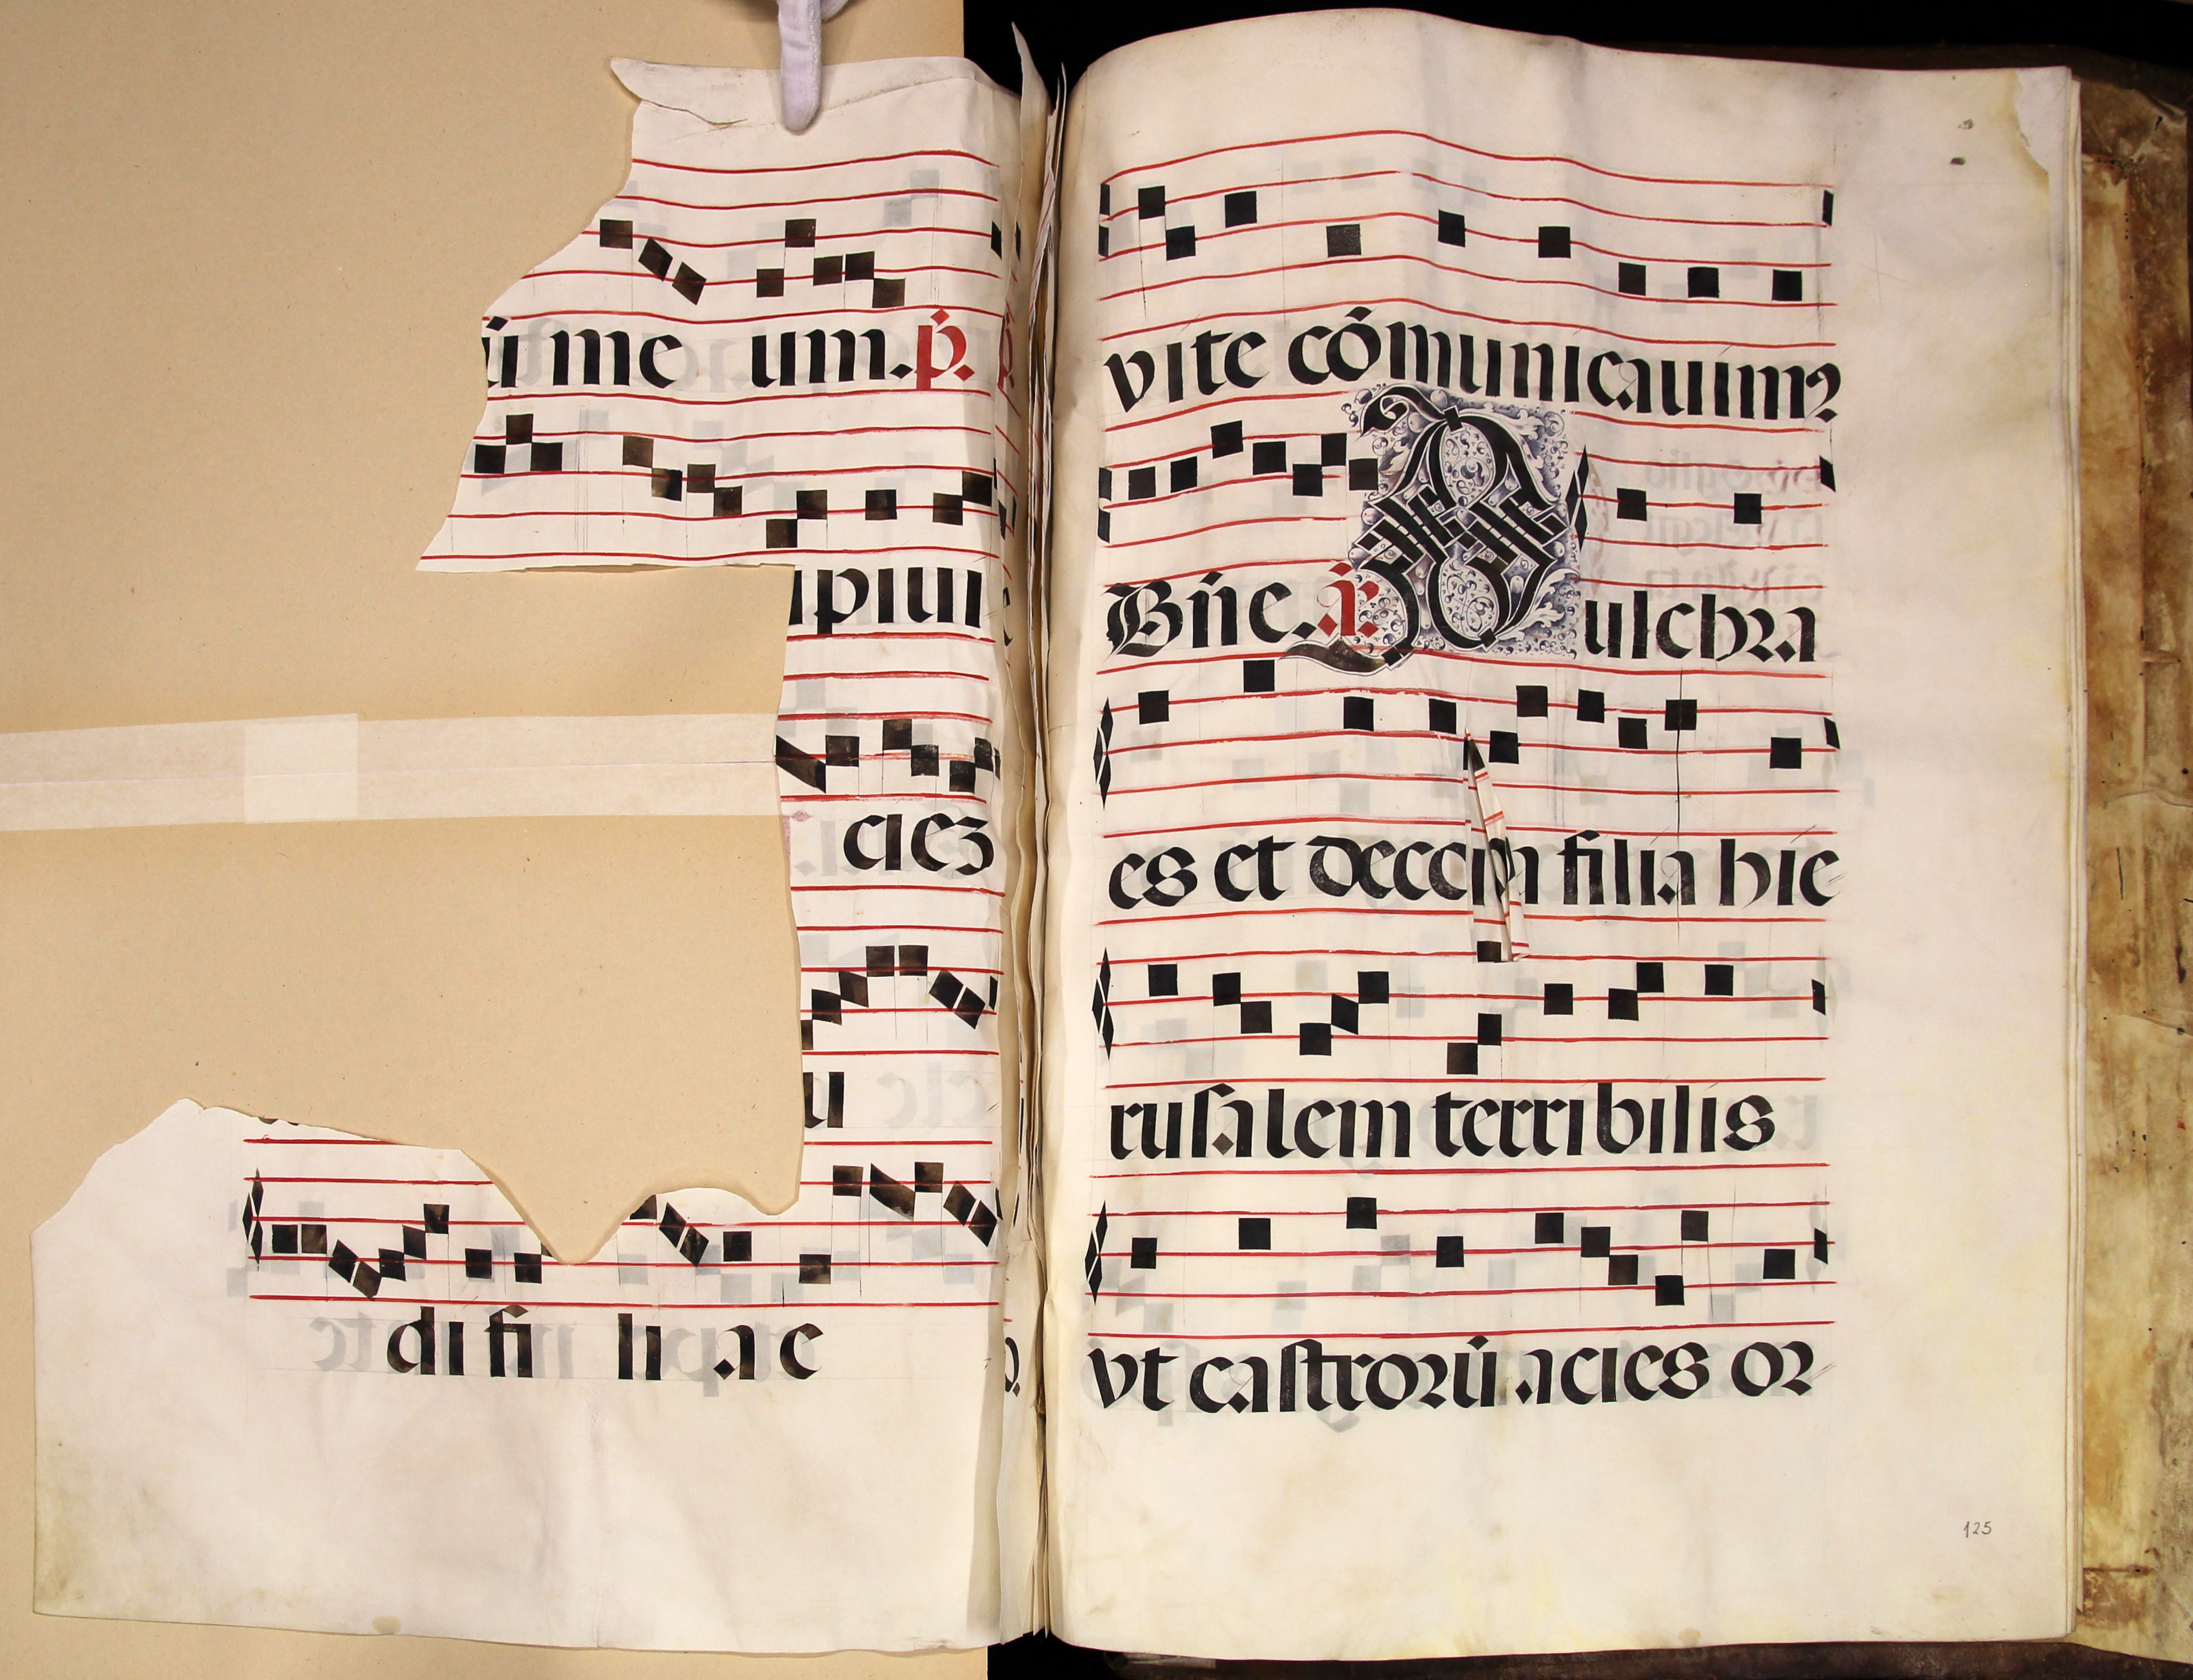 ū me um. p̄.
ipiui
ciez
u
di fi li a e
vite cōmunicauimꝰ
Bn̄e. ā. Pulchra
es et decora filia hie
rusalem terribilis
vt castrorū acies or
125